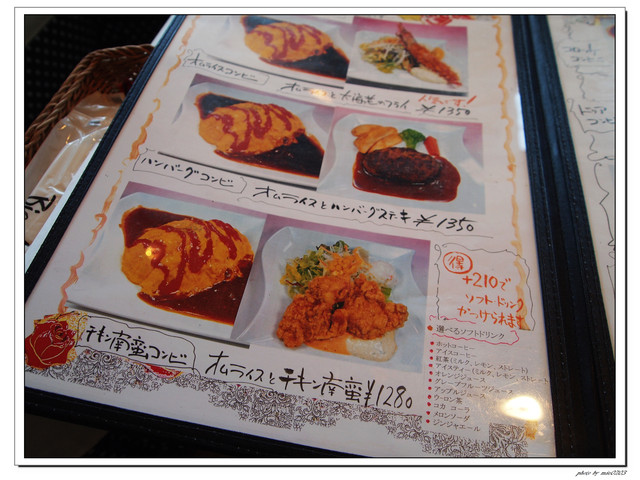 オムライスコンビ
オムライスと大海老のフライ ¥1350
ハンバーグコンビ
オムライスとハンバーグステーキ ¥1350
チキン南蛮コンビ
オムライスとチキン南蛮 ¥1280
得
+210で
ソフトドリンク
がつけられます
選べるソフトドリンク
ホットコーヒー
アイスコーヒー
紅茶(ミルク、レモン、ストレート)
アイスティー(ミルク、レモン、ストレート
オレンジジュース
グレープフルーツジュース
アップルジュース
ウーロン茶
コカ コーラ
メロンソーダ
ジンジャエール